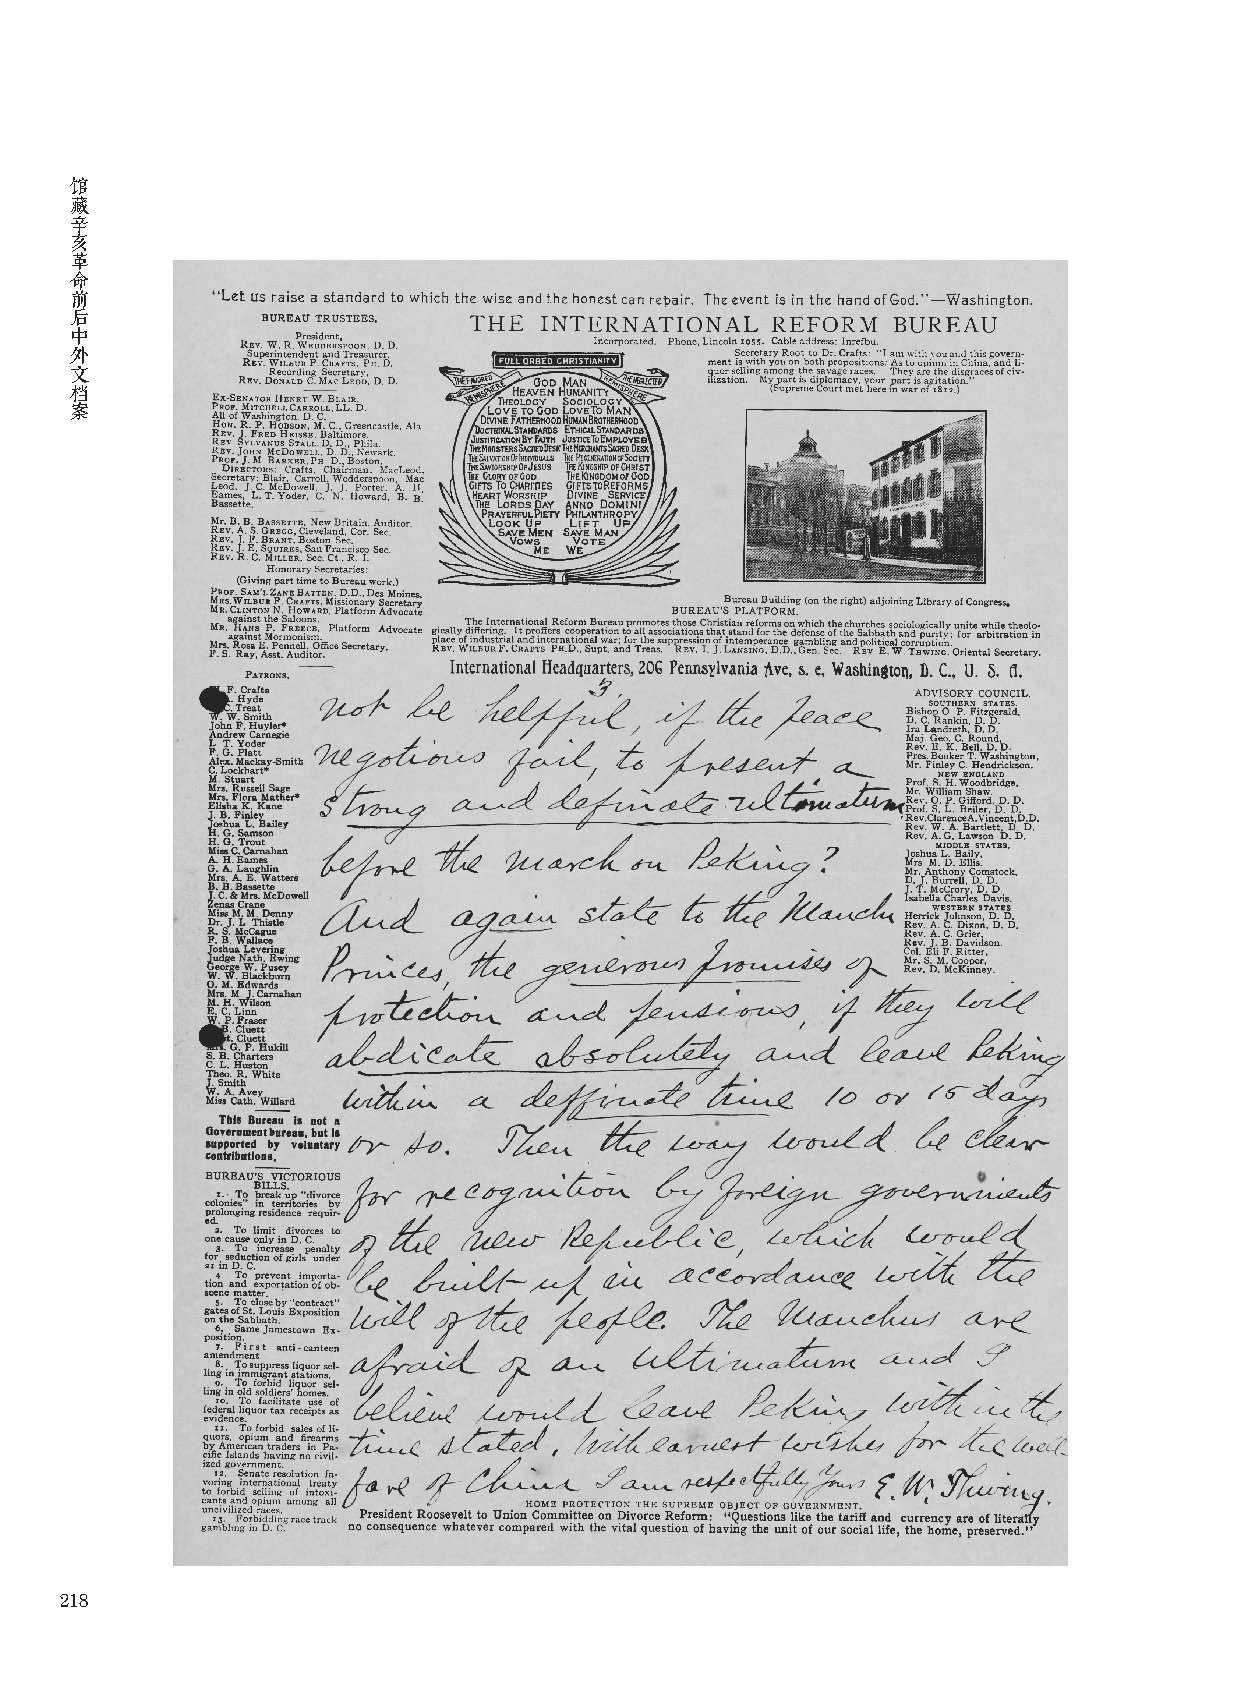 馆藏辛亥革命前后中外文档案
"Let us raise a standard to which the wise and the honest can repair. The event is in the hand of God."—Washington.
BUREAU TRUSTEES.
President,
REV. W. R. WEDDERSPOON, D. D.
Superintendent and Treasurer,
REV. WILBUR F. CRAFTS, PH. D.
Recording Secretary,
REV. DONALD C. MAC LEOD, D. D.
EX-SENATOR HENRY W. BLAIR.
PROF. MITCHELL CARROLL, LL. D.
All of Washington, D. C.
HON. R. P. HOBSON, M. C., Greencastle, Ala
REV. J. FRED HEISSE, Baltimore.
REV SYLVANUS STALL, D. D., Phila.
REV. JOHN MCDOWELL, D. D., Newark.
PROF. J. M BARKER, PH D., Boston,
DIRECTORS: Crafts, Chairman. MacLeod,
Secretary: Blair, Carroll, Wedderspoon, Mac
Leod, J. C. McDowell, J. J. Porter, A. H,
Eames, L. T. Yoder, C. N. Howard, B. B.
Bassette.
MR. B. B. BASSETTE, New Britain, Auditor.
REV. A. S. GREGG, Cleveland, Cor. Sec.
REV. J. F. BRANT, Boston Sec.
REV. J. E. SQUIRES, San Francisco Sec.
REV. R. C. MILLER, Sec. Ct., R. I.
Honorary Secretaries:
(Giving part time to Bureau work.)
PROF. SAM'L ZANE BATTEN, D.D., Des Moines.
MRS. WILBUR F. CRAFTS, Missionary Secretary
MR. CLINTON N. HOWARD, Platform Advocate
against the Saloons.
MR. HANS P. FREECE, Platform Advocate
against Mormonism.
Mrs. Rosa E. Pennell, Office Secretary.
F. S. Ray, Asst. Auditor.
THE INTERNATIONAL REFORM BUREAU
Incorporated. Phone, Lincoln 1055. Cable address: Inrefbu.
FULL ORBED CHRISTIANITY
THE FAVORED HEMISPHERE
HEMISPHERE THE NEGLECTED
GOD MAN
HEAVEN HUMANITY
THEOLOGY SOCIOLOGY
LOVE TO GOD LOVE TO MAN
DIVINE FATHERHOOD HUMAN BROTHERHOOD
DOCTRINAL STANDARDS ETHICAL STANDARDS
JUSTIFICATION BY FAITH JUSTICE TO EMPLOYEES
THE MINISTERS SACRED DESK THE MERCHANTS SACRED DESK
THE SALVATION OF INDIVIDUALS THE REGENERATION OF SOCIETY
THE SAVIORSHIP OF JESUS THE KINGSHIP OF CHRIST
THE GLORY OF GOD THE KINGDOM OF GOD
GIFTS TO CHARITIES GIFTS TO REFORMS
HEART WORSHIP DIVINE SERVICE
THE LORDS DAY ANNO DOMINI
PRAYERFUL PIETY PHILANTHROPY
LOOK UP LIFT UP
SAVE MEN SAVE MAN
VOWS VOTE
ME WE
Secretary Root to Dr. Crafts: "I am with you and this govern-
ment is with you on both propositions: As to opium in China, and li-
quor selling among the savage races. They are the disgraces of civ-
ilization. My part is diplomacy, your part is agitation."
(Supreme Court met here in war of 1812.)
Bureau Building (on the right) adjoining Library of Congress,
BUREAU'S PLATFORM.
The International Reform Bureau promotes those Christian reforms on which the churches sociologically unite while theolo-
gically differing. It proffers cooperation to all associations that stand for the defense of the Sabbath and purity; for arbitration in
place of industrial and international war; for the suppression of intemperance gambling and political corruption.
REV. WILBUR F. CRAFTS PH.D., Supt. and Treas. REV. I. J. LANSING, D.D., Gen. Sec. REV E. W THWING, Oriental Secretary.
International Headquarters, 206 Pennsylvania Ave, s. e, Washington, D. C., U. S. A.
PATRONS.
W. F. Crafts
Hyde
C. Treat
W. W. Smith
John F. Huyler*
Andrew Carnegie
L. T. Yoder
F. G. Platt
Alex. Mackay-Smith
C. Lockhart*
M. Stuart
Mrs. Russell Sage
Mrs. Flora Mather*
Elisha K. Kane
J. B. Finley
Joshua L. Bailey
H. G. Samson
H. G. Trout
Miss C. Carnahan
A. H. Eames
G. A. Laughlin
Mrs. A. E. Watters
B. B. Bassette
J. C. & Mrs. McDowell
Zenas Crane
Miss M. M. Denny
Dr. J. L. Thistle
R. S. McCague
F. B. Wallace
Joshua Levering
Judge Nath, Ewing
George W. Pusey
W. W. Blackburn
O. M. Edwards
Mrs. M. J. Carnahan
M. H. Wilson
E. C. Linn
W. P. Fraser
B. Cluett
t. Cluett
G. P. Hukill
S. B. Charters
C. L. Huston
Theo. R. White
J. Smith
W. A. Avey
Miss Cath. Willard
This Bureau is not a
Government bureau, but is
supported by voluntary
contributions.
BUREAU'S VICTORIOUS
BILLS.
1. To break up "divorce
colonies" in territories by
prolonging residence requir-
ed.
2. To limit divorces to
one cause only in D. C.
3. To increase penalty
for seduction of girls under
21 in D. C.
4 To prevent importa-
tion and exportation of ob-
scene matter.
5. To close by "contract"
gates of St. Louis Exposition
on the Sabbath.
6. Same Jamestown Ex-
position.
7. First anti-canteen
amendment
8. To suppress liquor sel-
ling in immigrant stations.
9. To forbid liquor sel-
ling in old soldiers' homes.
10. To facilitate use of
federal liquor tax receipts as
evidence.
11. To forbid sales of li-
quors, opium and firearms
by American traders in Pa-
cific Islands having no civil-
ized government.
12. Senate resolution fa-
voring international treaty
to forbid selling of intoxi-
cants and opium among all
uncivilized races.
13. Forbidding race track
gambling in D. C.
ADVISORY COUNCIL.
SOUTHERN STATES.
Bishop O P. Fitzgerald,
D. C. Rankin, D. D.
Ira Landreth, D. D.
Maj. Geo. C. Round,
Rev. E. K. Bell, D. D.
Pres. Booker T. Washington,
Mr. Finley C. Hendrickson.
NEW ENGLAND
Prof. S. H. Woodbridge,
Mr. William Shaw,
Rev. O. P. Gifford, D. D.
Prof. S. L. Beiler, D. D.
Rev. Clarence A. Vincent, D.D.
Rev. W. A. Bartlett, D. D.
Rev. A. G. Lawson D. D.
MIDDLE STATES.
Joshua L. Baily,
Mrs M. D. Ellis.
Mr. Anthony Comstock,
D. J. Burrell, D. D.
J. T. McCrory, D. D.
Isabella Charles Davis.
WESTERN STATES
Herrick Johnson, D. D,
Rev. A. C. Dixon, D. D.
Rev. A. C. Grier,
Rev. J. B. Davidson.
Col. Eli F. Ritter,
Mr. S. M. Cooper,
Rev. D. McKinney.
3.
not be helpful, if the peace
negotions fail, to present a
strong and definate ultimatum
before the march on Peking?
And again state to the Manchu
Princes, the generous promises of
protection and pensions, if they will
abdicate absolutely and leave Peking
within a deffinate time 10 or 15 days
or so. Then the way would be clear
for recognition by foreign governments
of the new Republic, which would
be built up in accordance with the
will of the people. The Manchus are
afraid of an ultimatum and I
believe would leave Peking within the
time stated. With earnest wishes for the wel-
fare of China I am respectfully Yours E. W. Thwing.
HOME PROTECTION THE SUPREME OBJECT OF GOVERNMENT.
President Roosevelt to Union Committee on Divorce Reform: "Questions like the tariff and currency are of literally
no consequence whatever compared with the vital question of having the unit of our social life, the home, preserved."
218